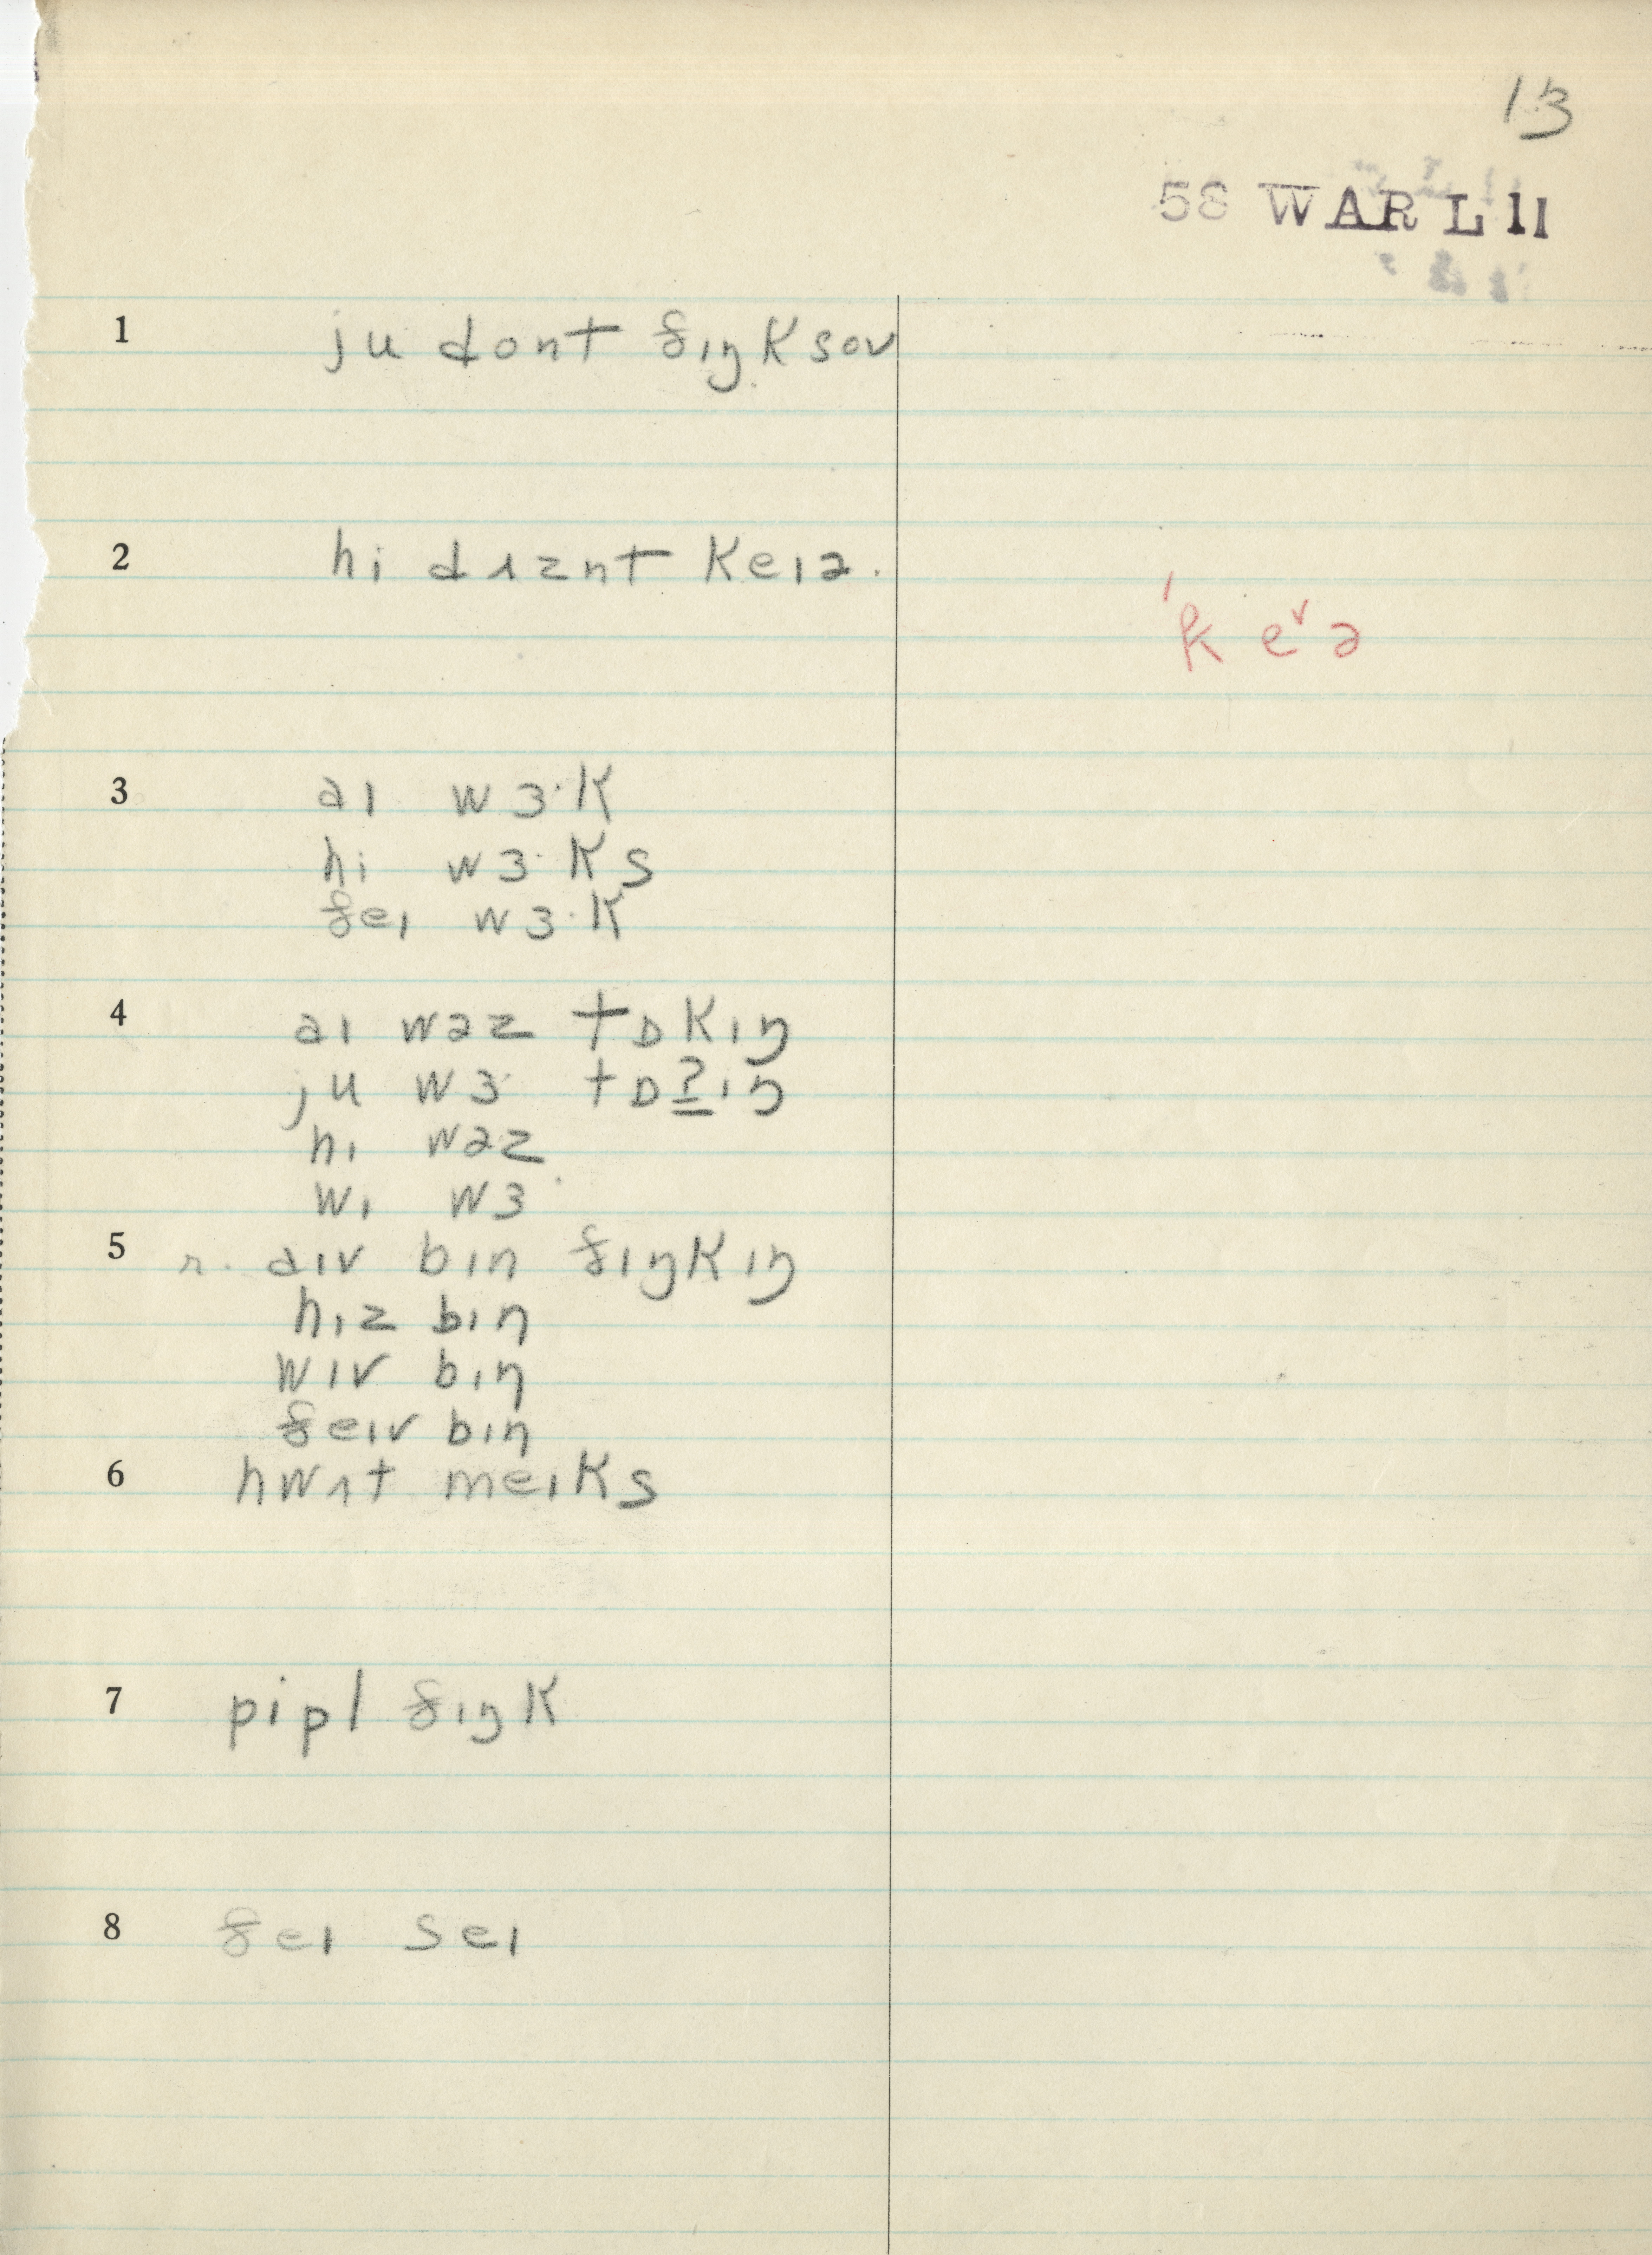 13
58 WAR L 11
1 ju dont θɪŋksoʊ
2 hi dʌznt keɪə.
ˈk eᵛ ə
3 aɪ wɜ·k
hi wɜ·ks
ðeɪ wɜ·k
4 aɪ wəz tɒkɪŋ
ju wɜ· tɒ?ɪŋ
hi wəz
wi wɜ·
5 r. aɪv bɪn θɪŋkɪŋ
hiz bɪn
wiv bɪn
ðeɪv bɪn
6 hwʌt meɪks
7 pipl θɪŋk
8 ðeɪ seɪ